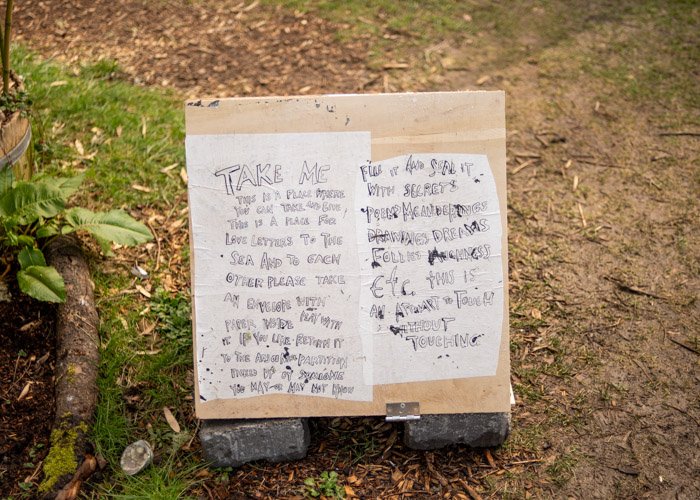 TAKE ME
THIS IS A PLACE WHERE
YOU CAN TAKE AND GIVE,
THIS IS A PLACE FOR
LOVE LETTERS TO THE
SEA AND TO EACH
OTHER PLEASE TAKE
AN ENVELOPE WITH
PAPER INSIDE PLAY WITH
IT IF YOU LIKE RETURN IT
TO THE
PICKED UP BY SOMEONE
YOU MAY OR MAY NOT KNOW
FILL IT AND SEAL IT
WITH SECRETS
POEMS MEANDERINGS
DRAWINGS DREAMS
FOLLIES
Etc. THIS IS
AN ATTEMPT TO TOUCH
WITHOUT
TOUCHING